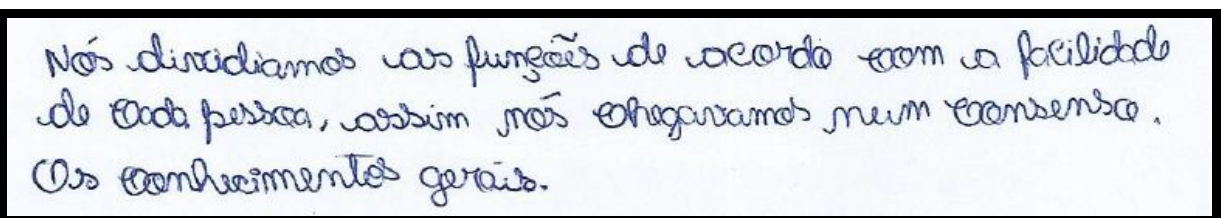 Nós dividiamos as funções de acordo com a facilidade
de cada pessoa, assim nós chegavamos num consenso.
Os conhecimentos gerais.